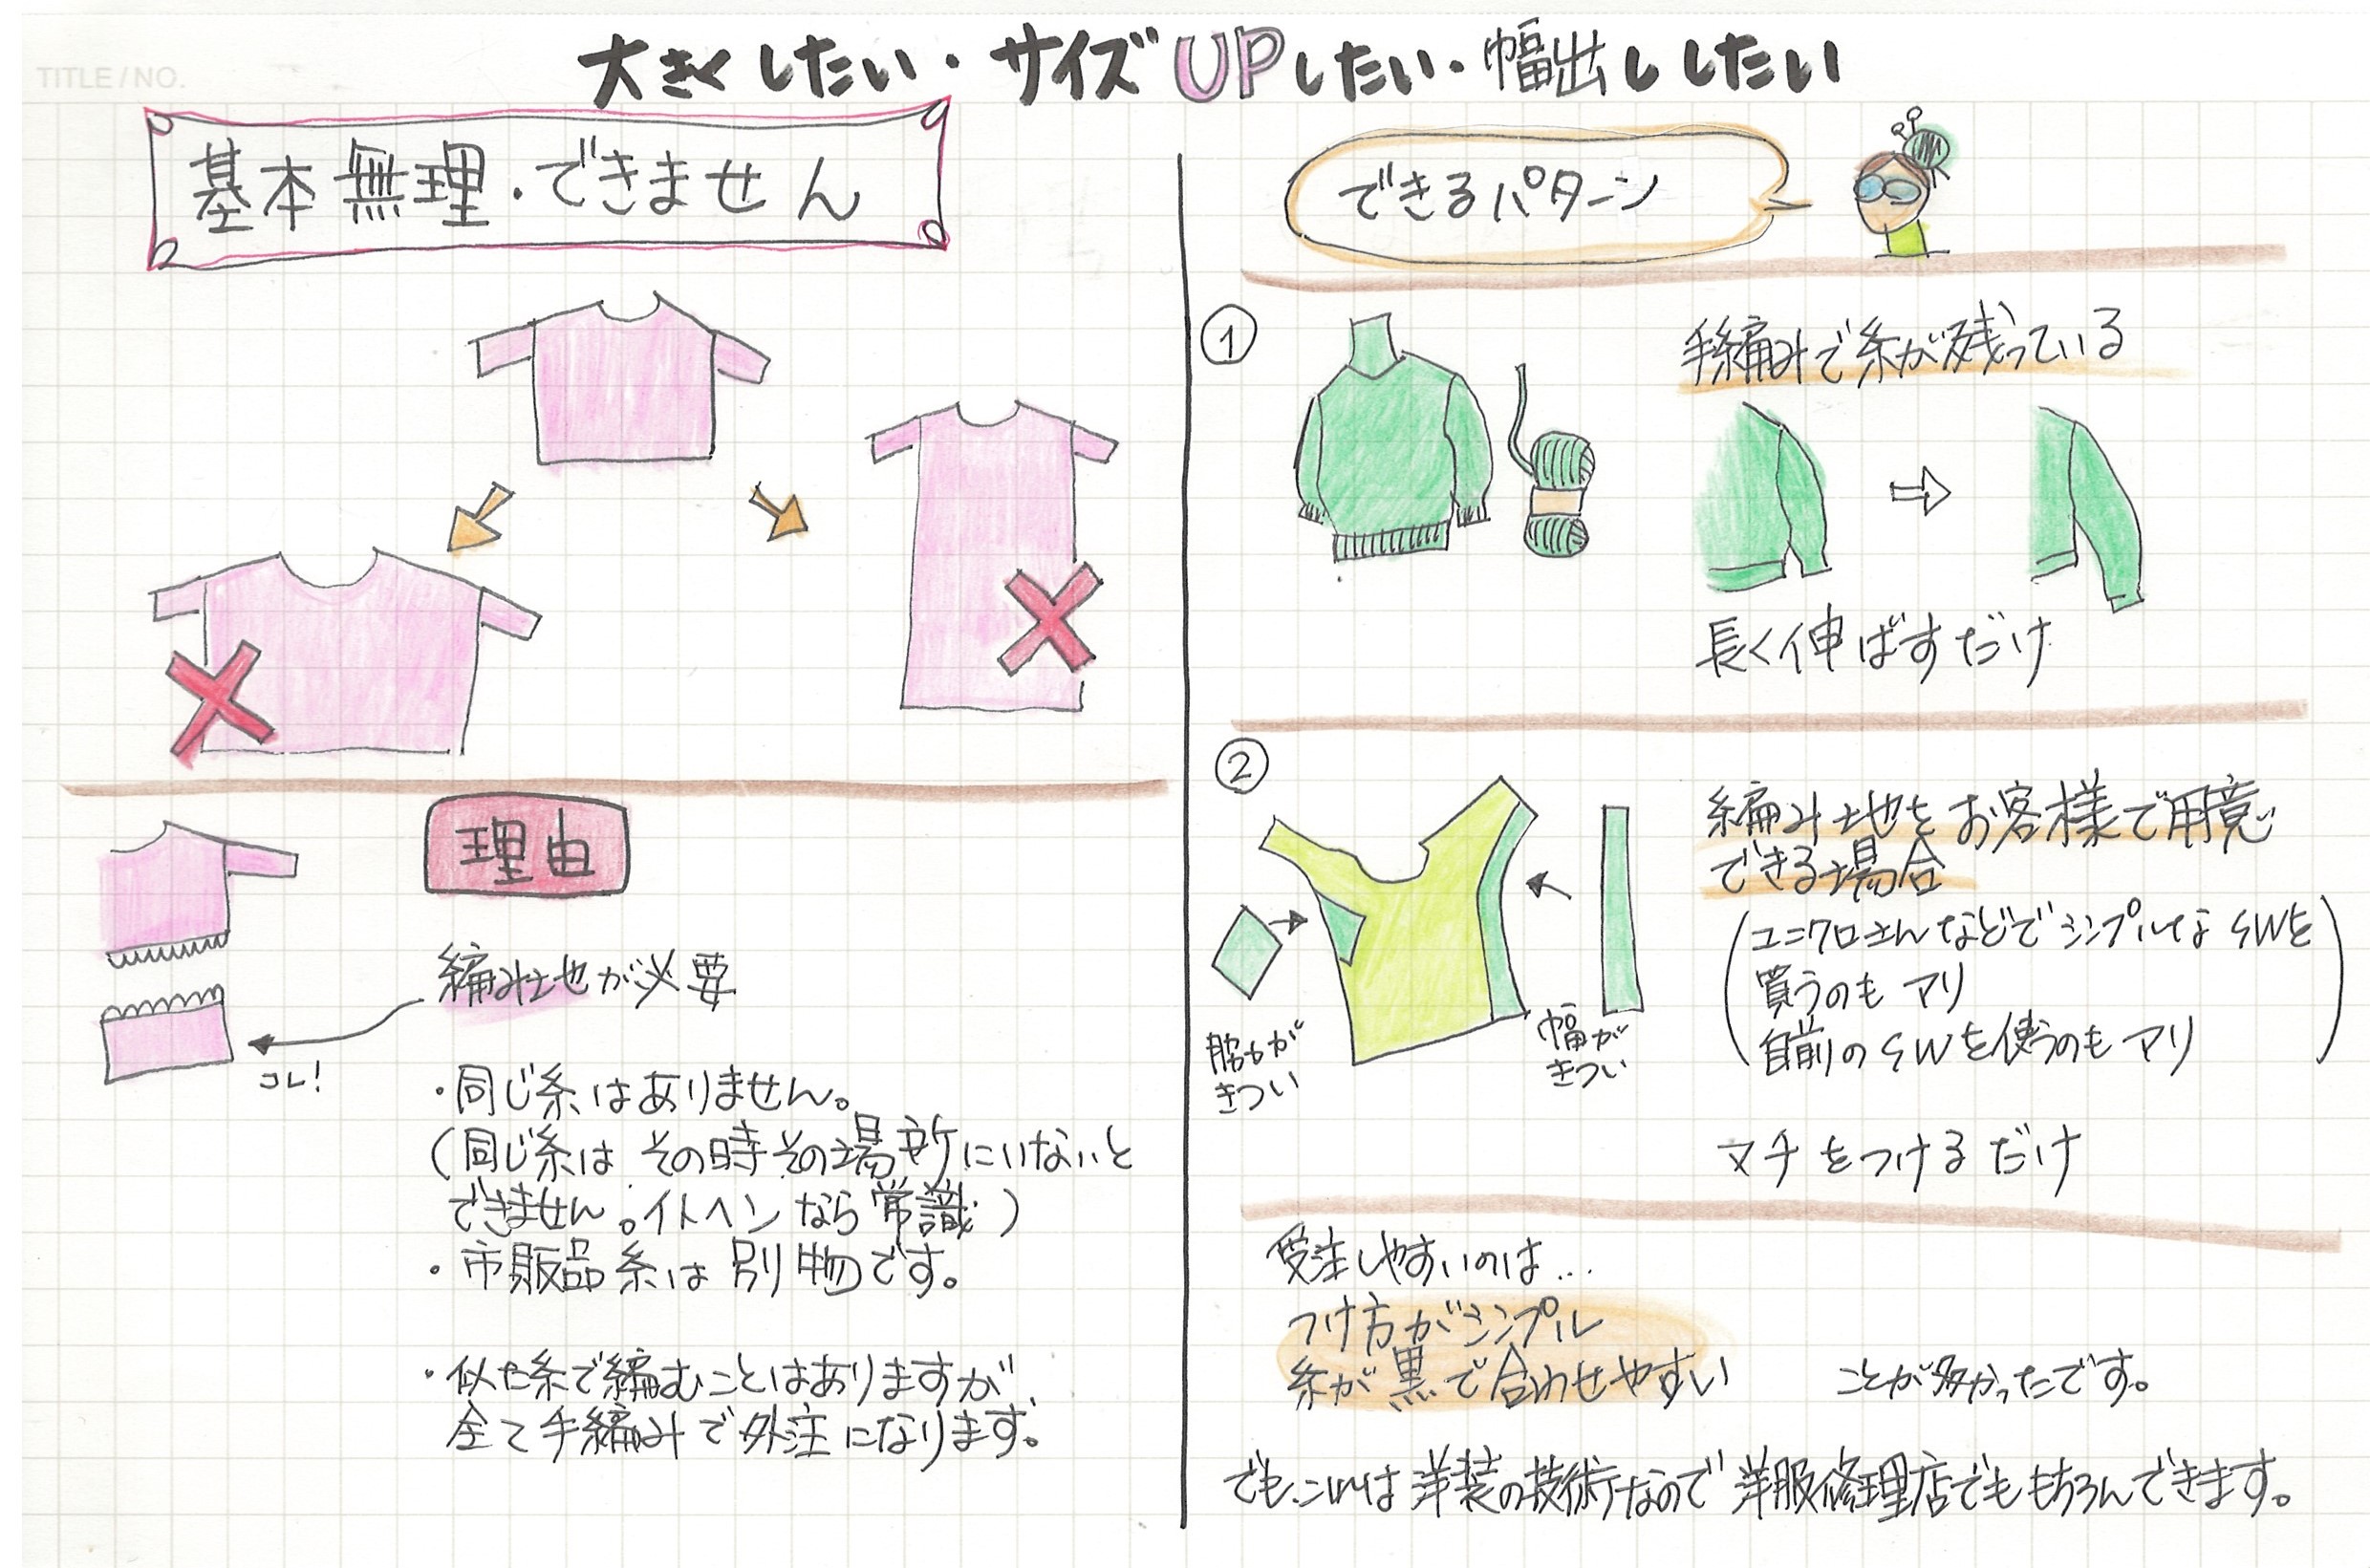 TITLE/NO.
大きくしたい・サイズUPしたい・幅出ししたい
基本無理・できません
理由
編み地が必要
コレ!
・同じ糸はありません。
(同じ糸は その時その場所にいないと
できません。イトヘンなら常識)
・市販品糸は別物です。
・似た糸で編むことはありますが
全て手編みで外注になります。
できるパターン
①
手編みで糸が残っている
長く伸ばすだけ
②
編み地をお客様で用意
できる場合
(ユニクロさんなどでシンプルなSWを
買うのもアリ
自前のSWを使うのもアリ)
脇がきつい
幅が
きつい
マチをつけるだけ
受注しやすいのは…
つけ方がシンプル
糸が黒で合わせやすい ことが多かったです。
でも、これは洋装の技術なので洋服修理店でももちろんできます。